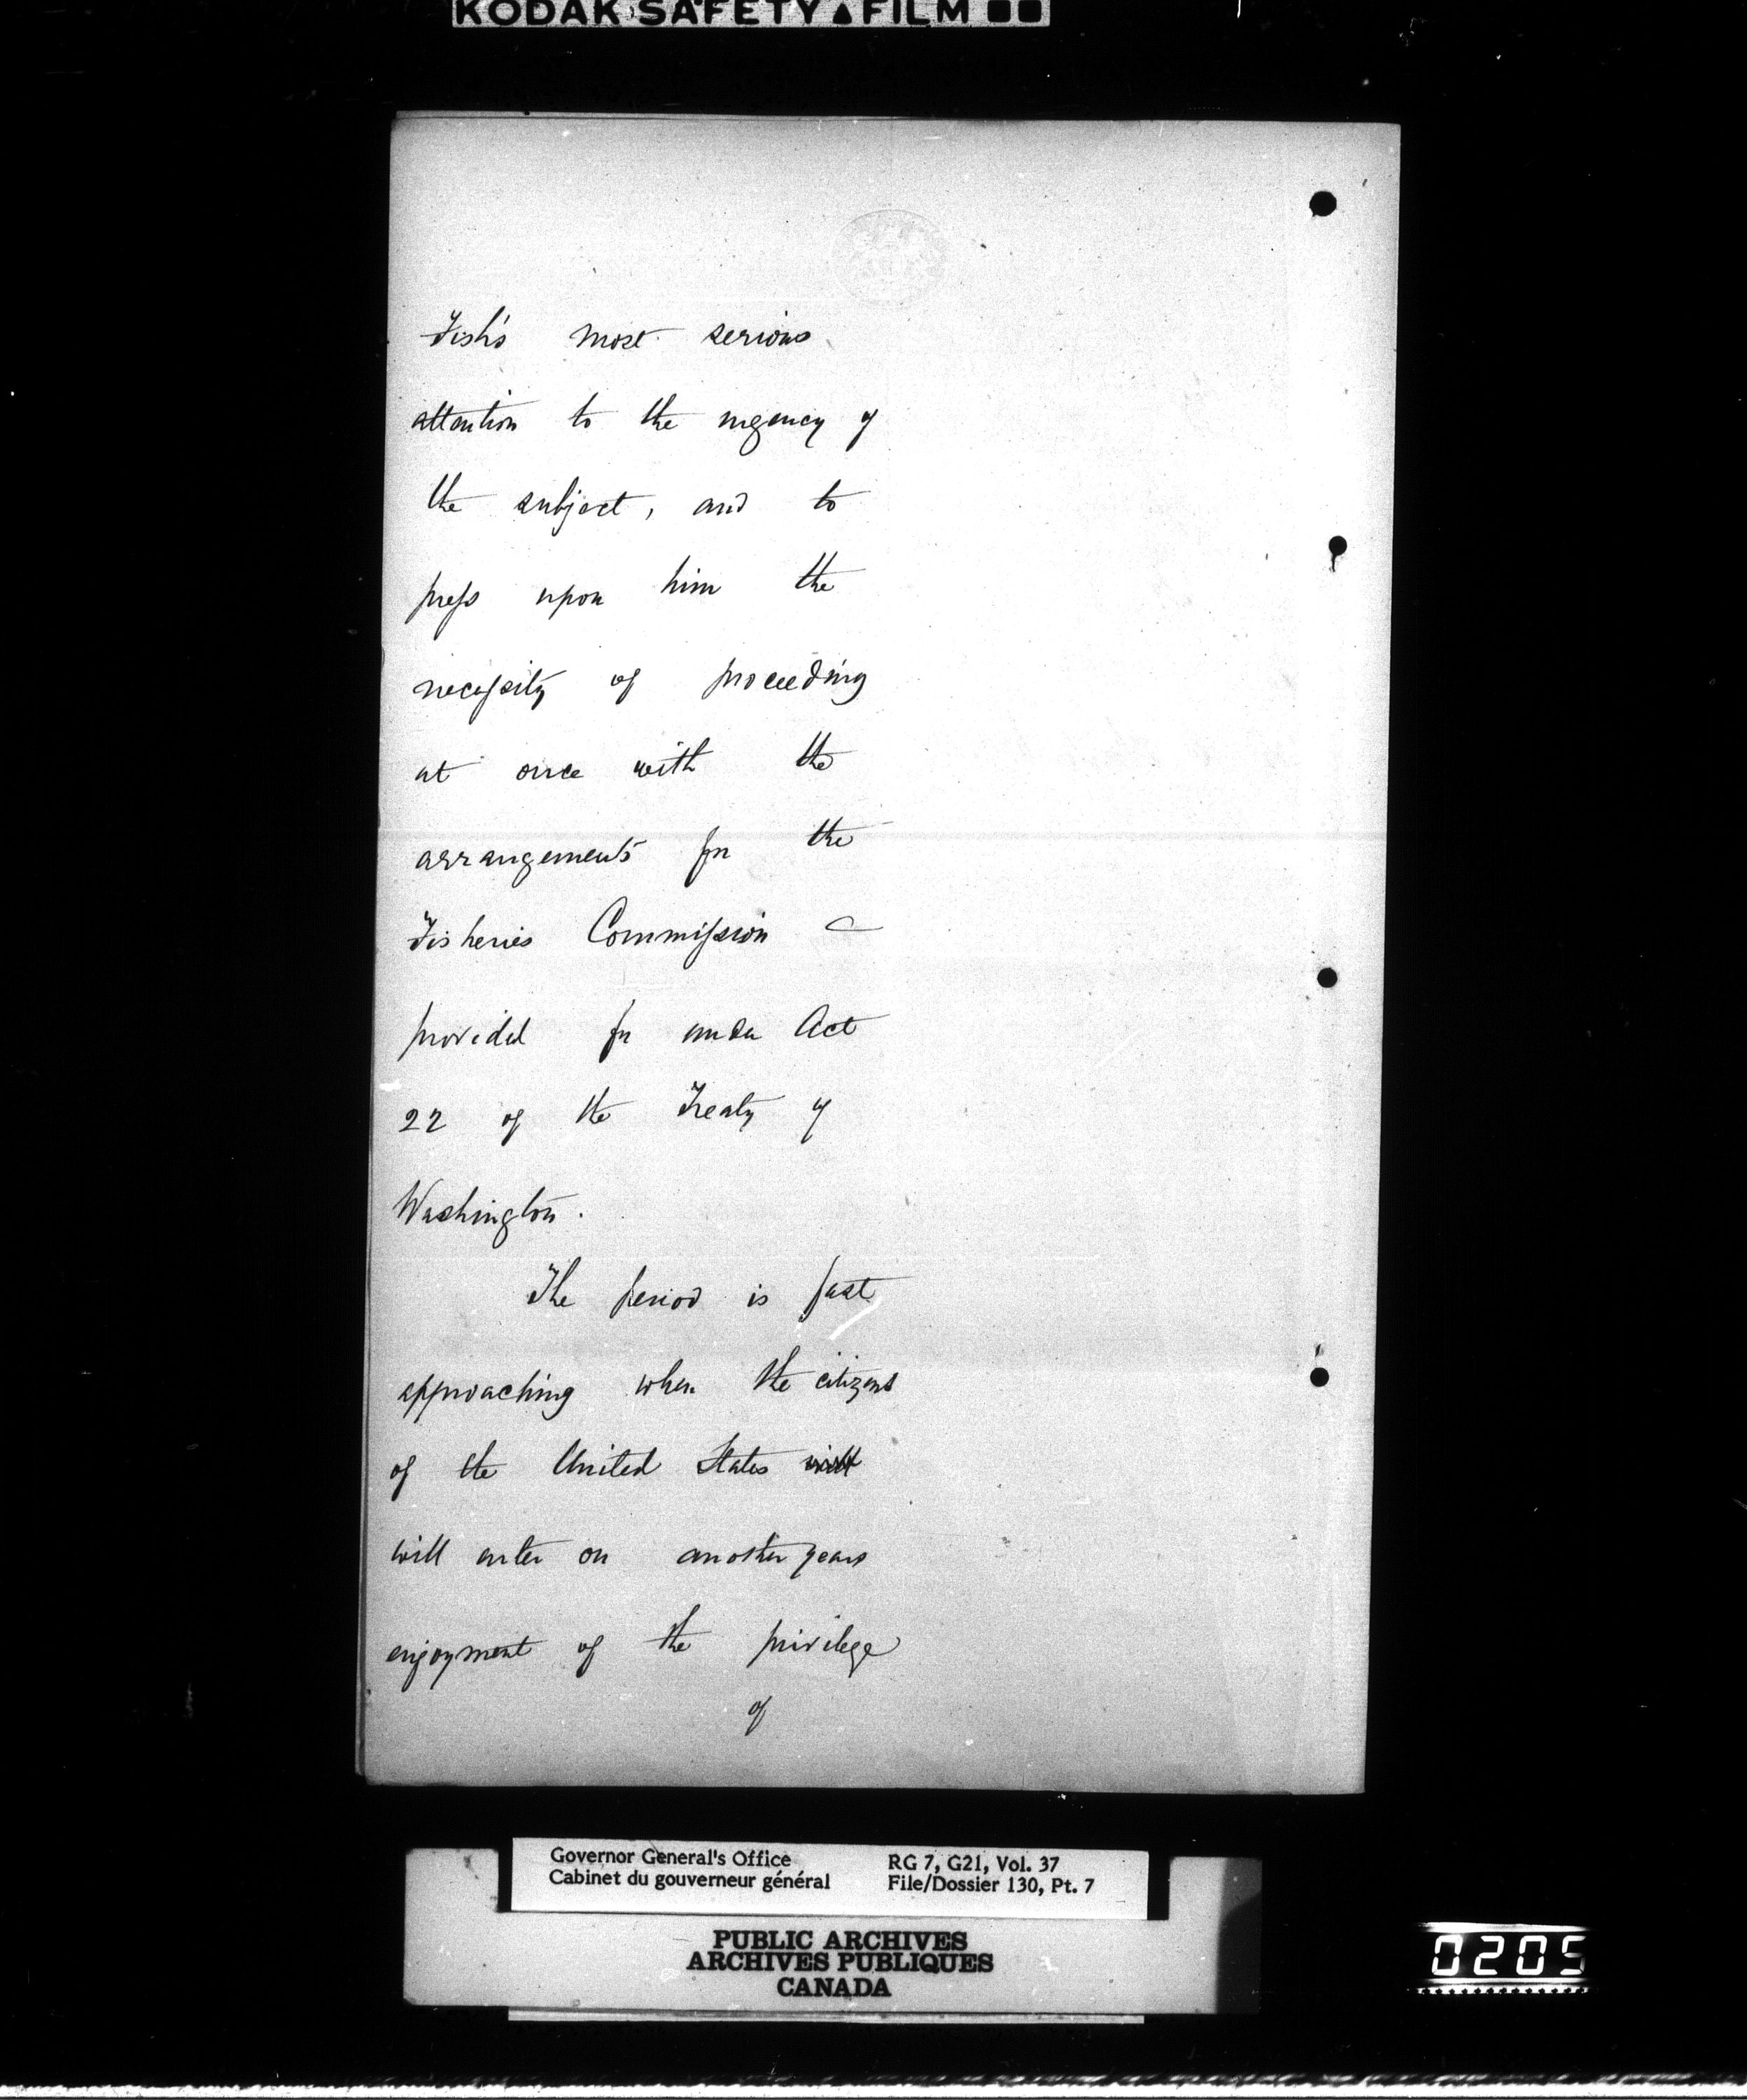 KODAK SAFETY FILM
Fish's most serious
attention to the urgency of
the subject, and to
press upon him the
necessity of proceeding
at once with the
arrangements for the
Fisheries Commission
provided for under Act
22 of the Treaty of
Washington.
The period is fast
approaching when the citizens
of the United States will
will enter on another years
enjoyment of the privilege
of
Governor General's Office RG 7, G21, Vol. 37
Cabinet du gouverneur général File/Dossier 130, Pt. 7
PUBLIC ARCHIVES
ARCHIVES PUBLIQUES
CANADA
0205